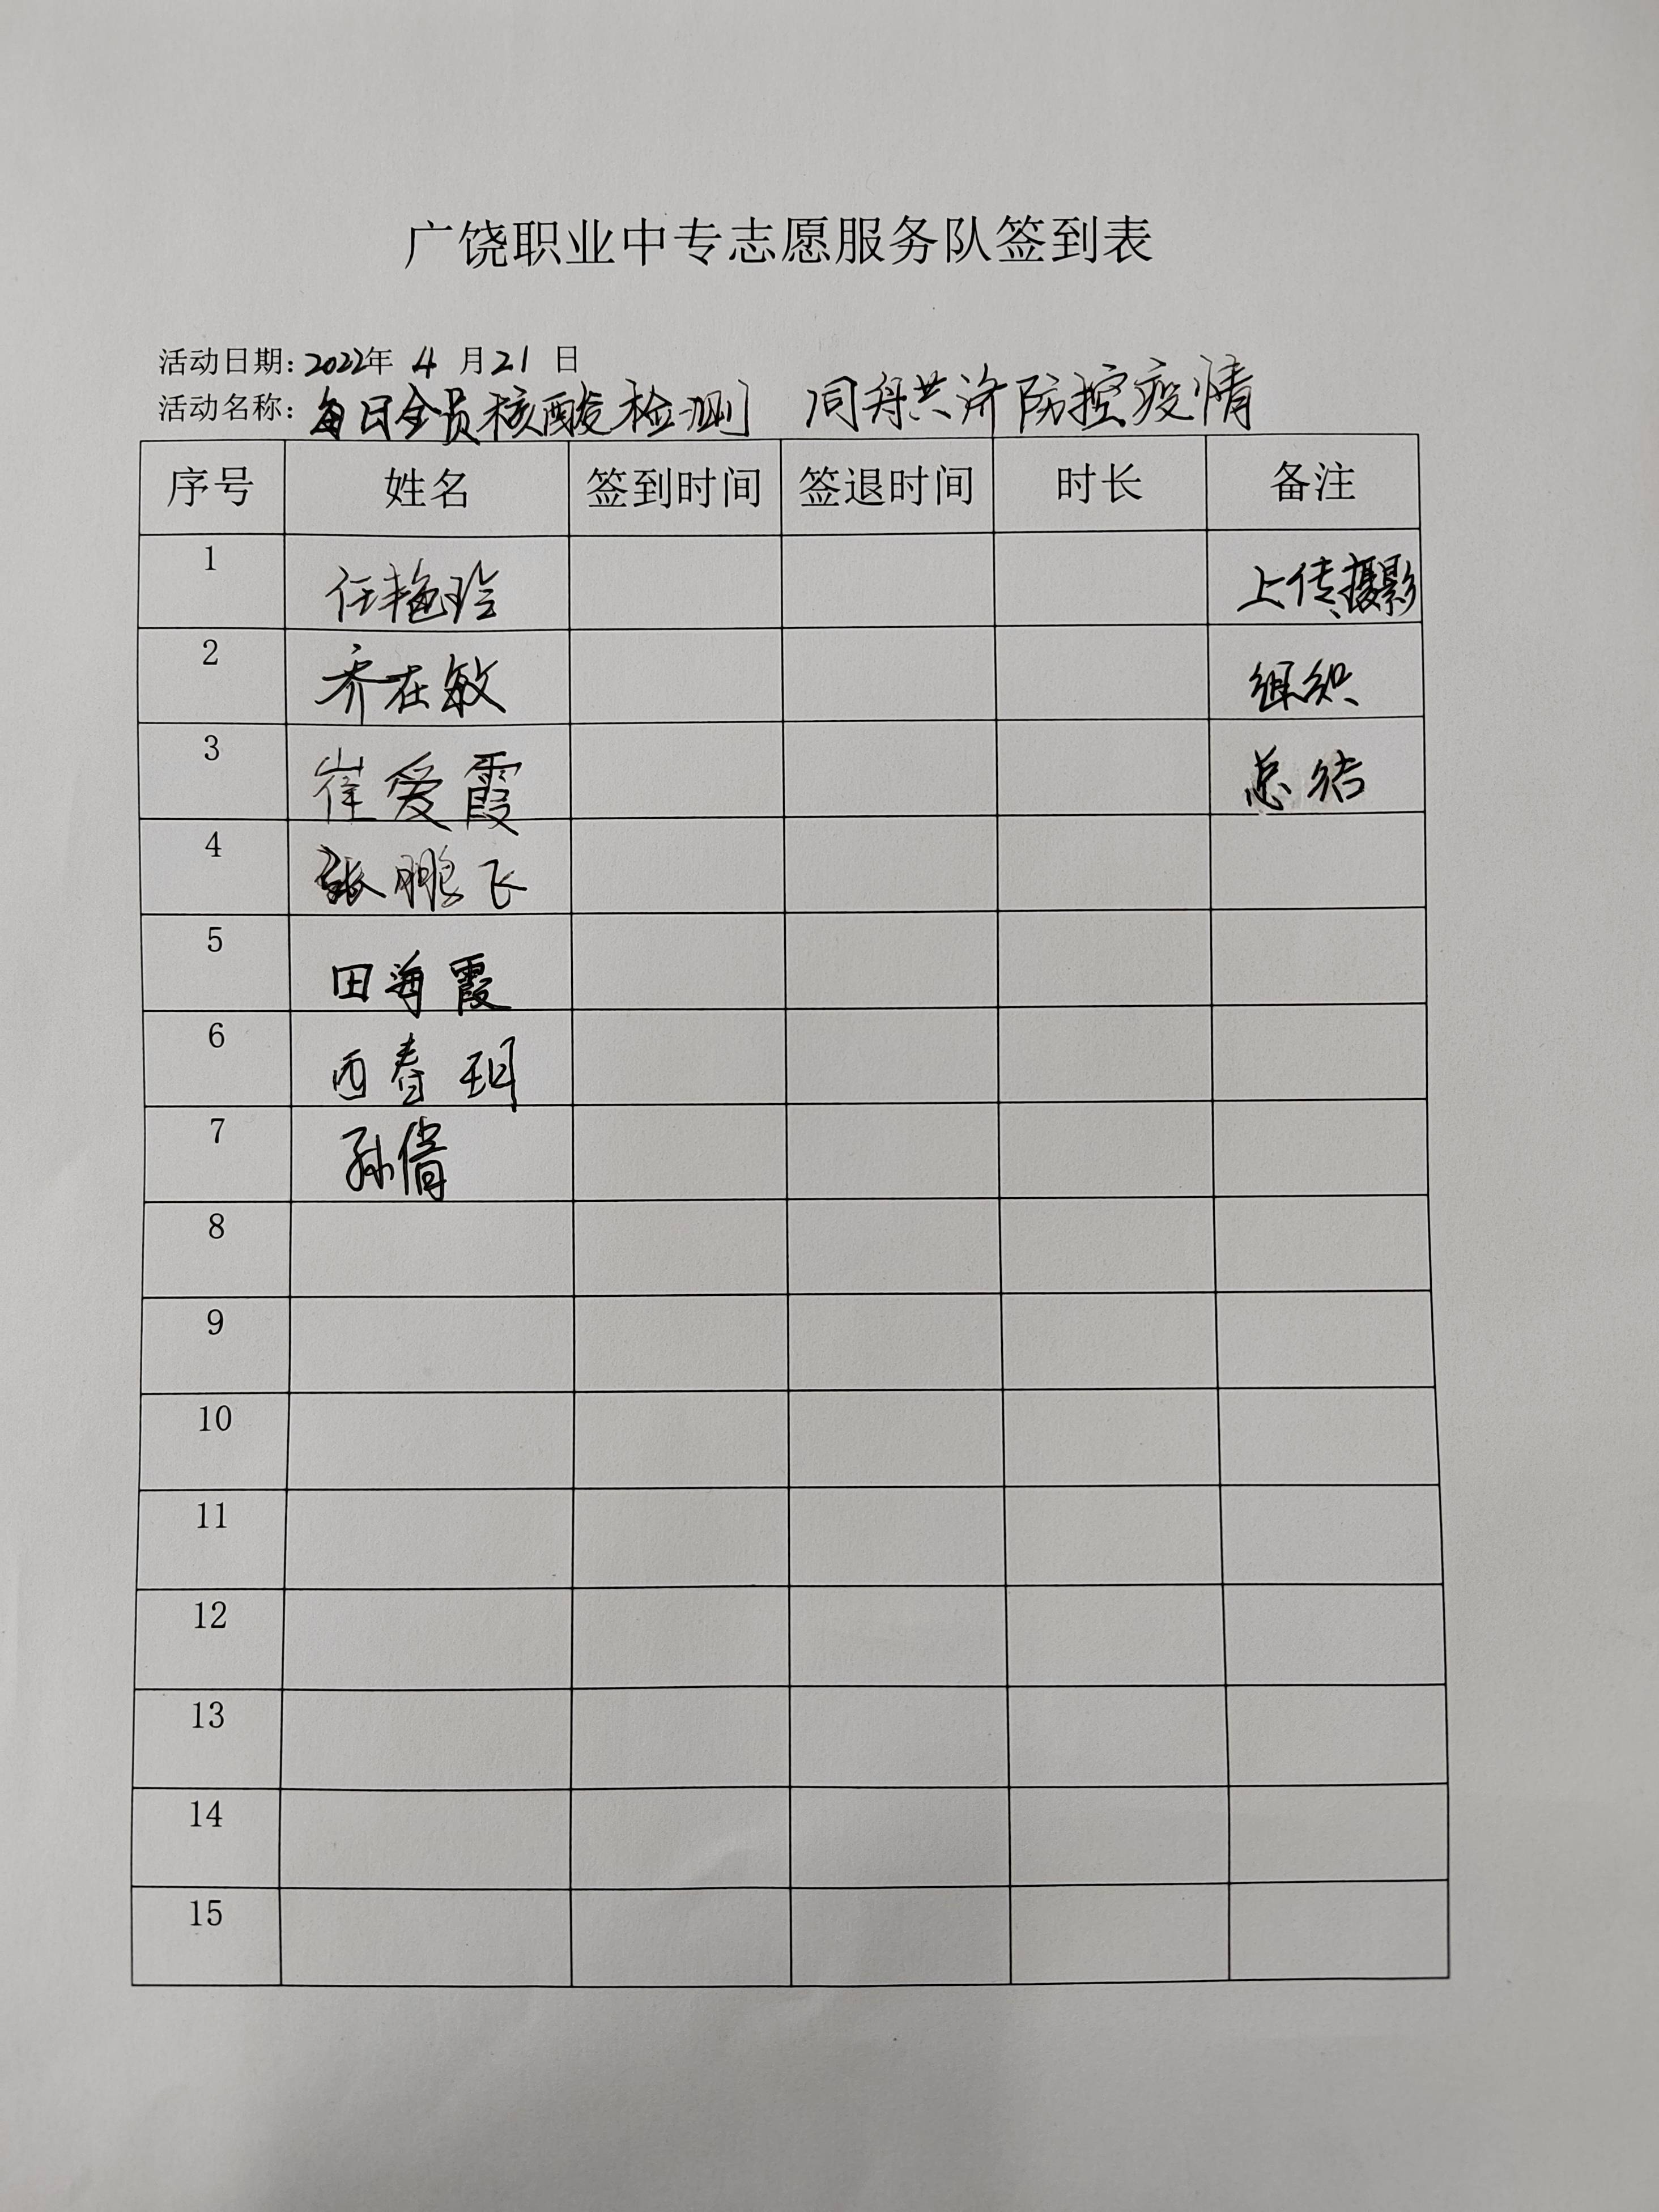 广饶职业中专志愿服务队签到表
活动日期：2022年 4 月 21 日
活动名称：每日全员核酸检测 同舟共济防控疫情
序号 姓名 签到时间 签退时间 时长 备注
1 任艳玲 上传、摄影
2 乔在敏 组织
3 崔爱霞 总结
4 张鹏飞
5 田海霞
6 西春玥
7 孙倩
8
9
10
11
12
13
14
15